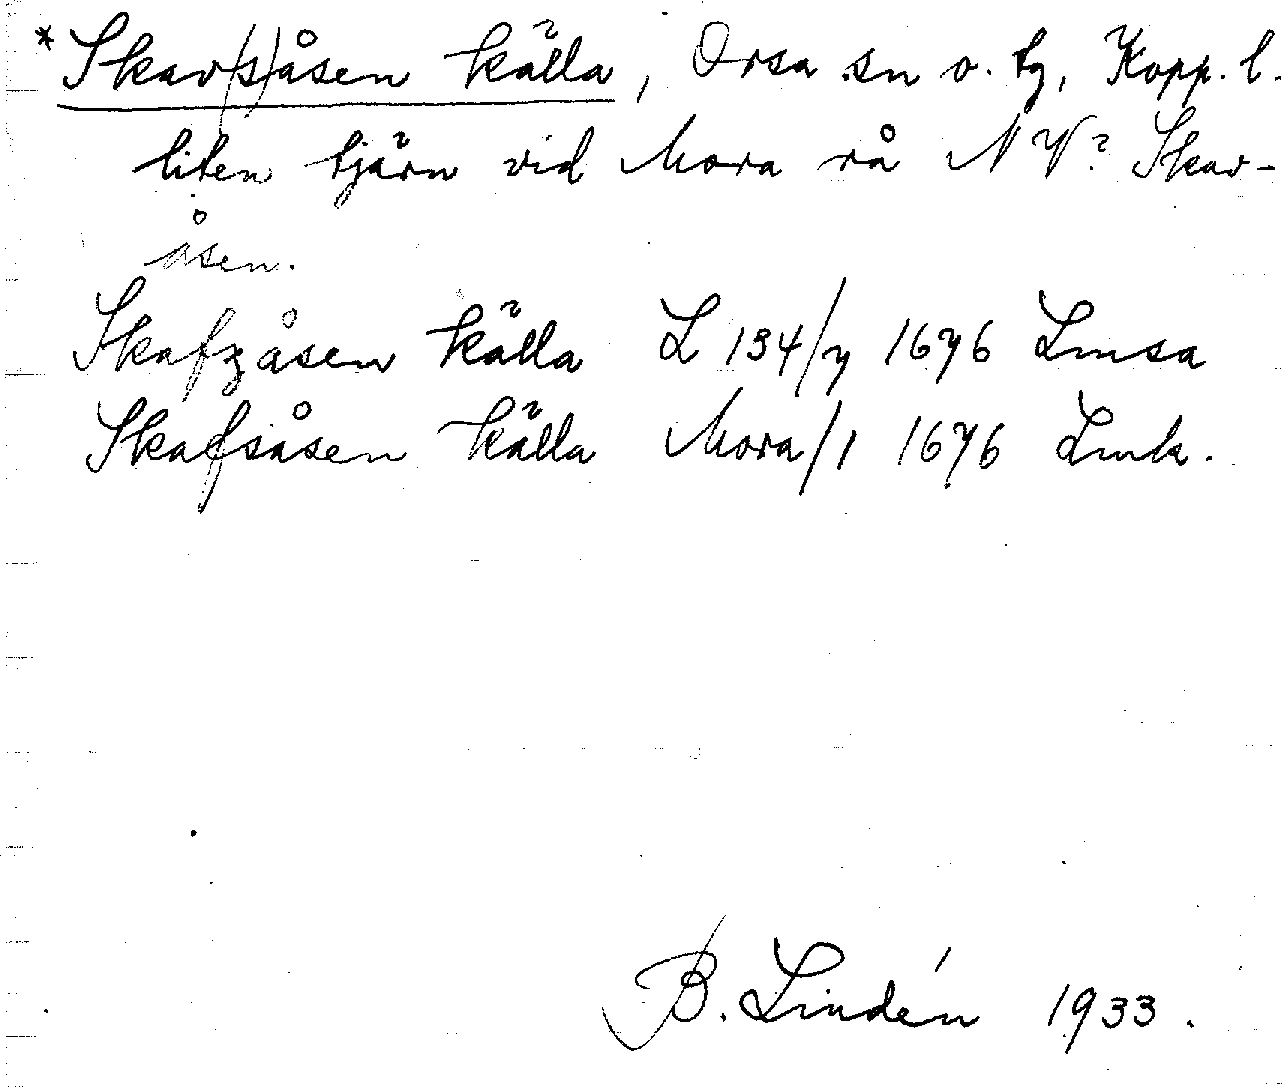 *Skav(s)åsen källa, Orsa sn o. tg, Kopp. l.
liten tjärn vid Mora rå NV? Skav-
åsen.
Skafzåsen källa L 134/7 1676 Lmsa
Skafsåsen källa Mora/1 1676 Lmk.
B. Lindén 1933.